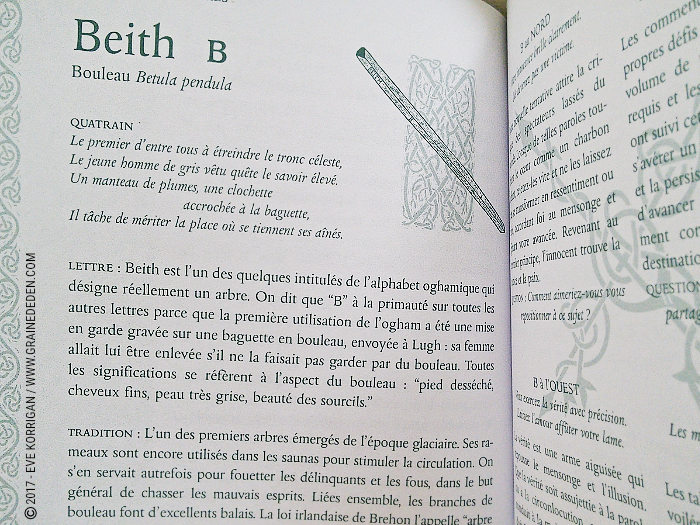 Beith B
Bouleau Betula pendula
QUATRAIN
Le premier d'entre tous à étreindre le tronc céleste,
Le jeune homme de gris vêtu quête le savoir élevé.
Un manteau de plumes, une clochette
accrochée à la baguette,
Il tâche de mériter la place où se tiennent ses aînés.
LETTRE : Beith est l'un des quelques intitulés de l'alphabet oghamique qui
désigne réellement un arbre. On dit que "B" à la primauté sur toutes les
autres lettres parce que la première utilisation de l'ogham a été une mise
en garde gravée sur une baguette en bouleau, envoyée à Lugh : sa femme
allait lui être enlevée s'il ne la faisait pas garder par du bouleau. Toutes
les significations se réfèrent à l'aspect du bouleau : "pied desséché,
cheveux fins, peau très grise, beauté des sourcils."
TRADITION : L'un des premiers arbres émergés de l'époque glaciaire. Ses ra-
meaux sont encore utilisés dans les saunas pour stimuler la circulation. On
s'en servait autrefois pour fouetter les délinquants et les fous, dans le but
général de chasser les mauvais esprits. Liées ensemble, les branches de
bouleau font d'excellents balais. La loi irlandaise de Brehon l'appelle "arbre
B au NORD
clairement,
une victime.
tentative attire la cri-
spectateurs lassés du
de telles paroles tou-
comme un charbon
vite et ne les laissez
transformer en ressentiment ou
accordant foi au mensonge et
votre avancée. Revenant au
principe, l'innocent trouve la
et la paix.
Comment aimeriez-vous vous
repositionner à ce sujet ?
B à l'OUEST
exercez la vérité avec précision.
l'amour affûter votre lame.
vérité est une arme aiguisée qui
le mensonge et l'illusion.
la vérité soit assujettie à la parol
à la circonlocution
Les comment
propres défis
volume de
requis et les
ont suivi cet
s'avérer un
et la persis
d'avancer
ment cor
destinatio
QUESTION
partag
Les m
© 2017 - EVE KORRIGAN / WWW.GRAINEDEDEN.COM